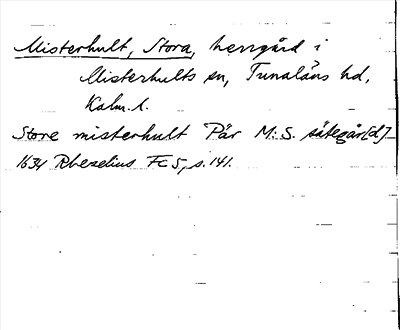 Misterhult, Stora, herrgård i
Misterhults sn, Tunaläns hd,
Kalm. l.
Store misterhult Pär M:S. sätegår[d]
1634 Rhezelius Fc 5, s. 141.